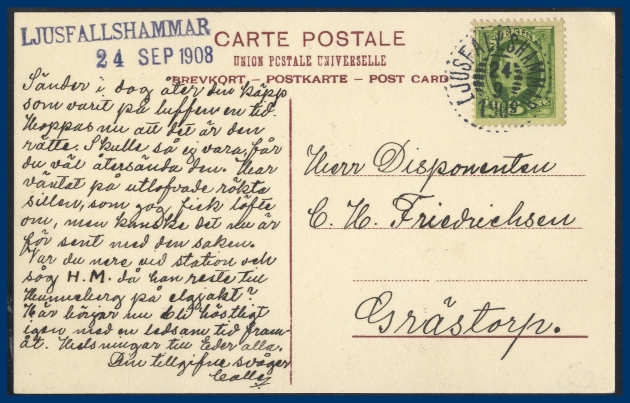 LJUSFALLSHAMMAR
24 SEP 1908
CARTE POSTALE
UNION POSTALE UNIVERSELLE
BREVKORT – POSTKARTE – POST CARD
SVERIGE
LJUSFALLSHAMMAR
24
9
1908
Sänder i dag åter den käpp
som varit på luffen en tid.
Hoppas nu att det är den
rätte. Skulle så ej vara, får
du väl återsända den. Har
väntat på utlofvade rökta
sillen, som jag fick löfte
om, men kanske det nu är
för sent med den saken.
Var du nere vid station och
såg H.M. då han reste till
Hunneberg på elgjakt?
Här börjar nu bli höstligt
igen med en ledsam tid fram-
åt. Helsningar till Eder alla.
Din tillgifne svåger
Herr Disponenten
C. H. Friedrichsen
Grästorp.